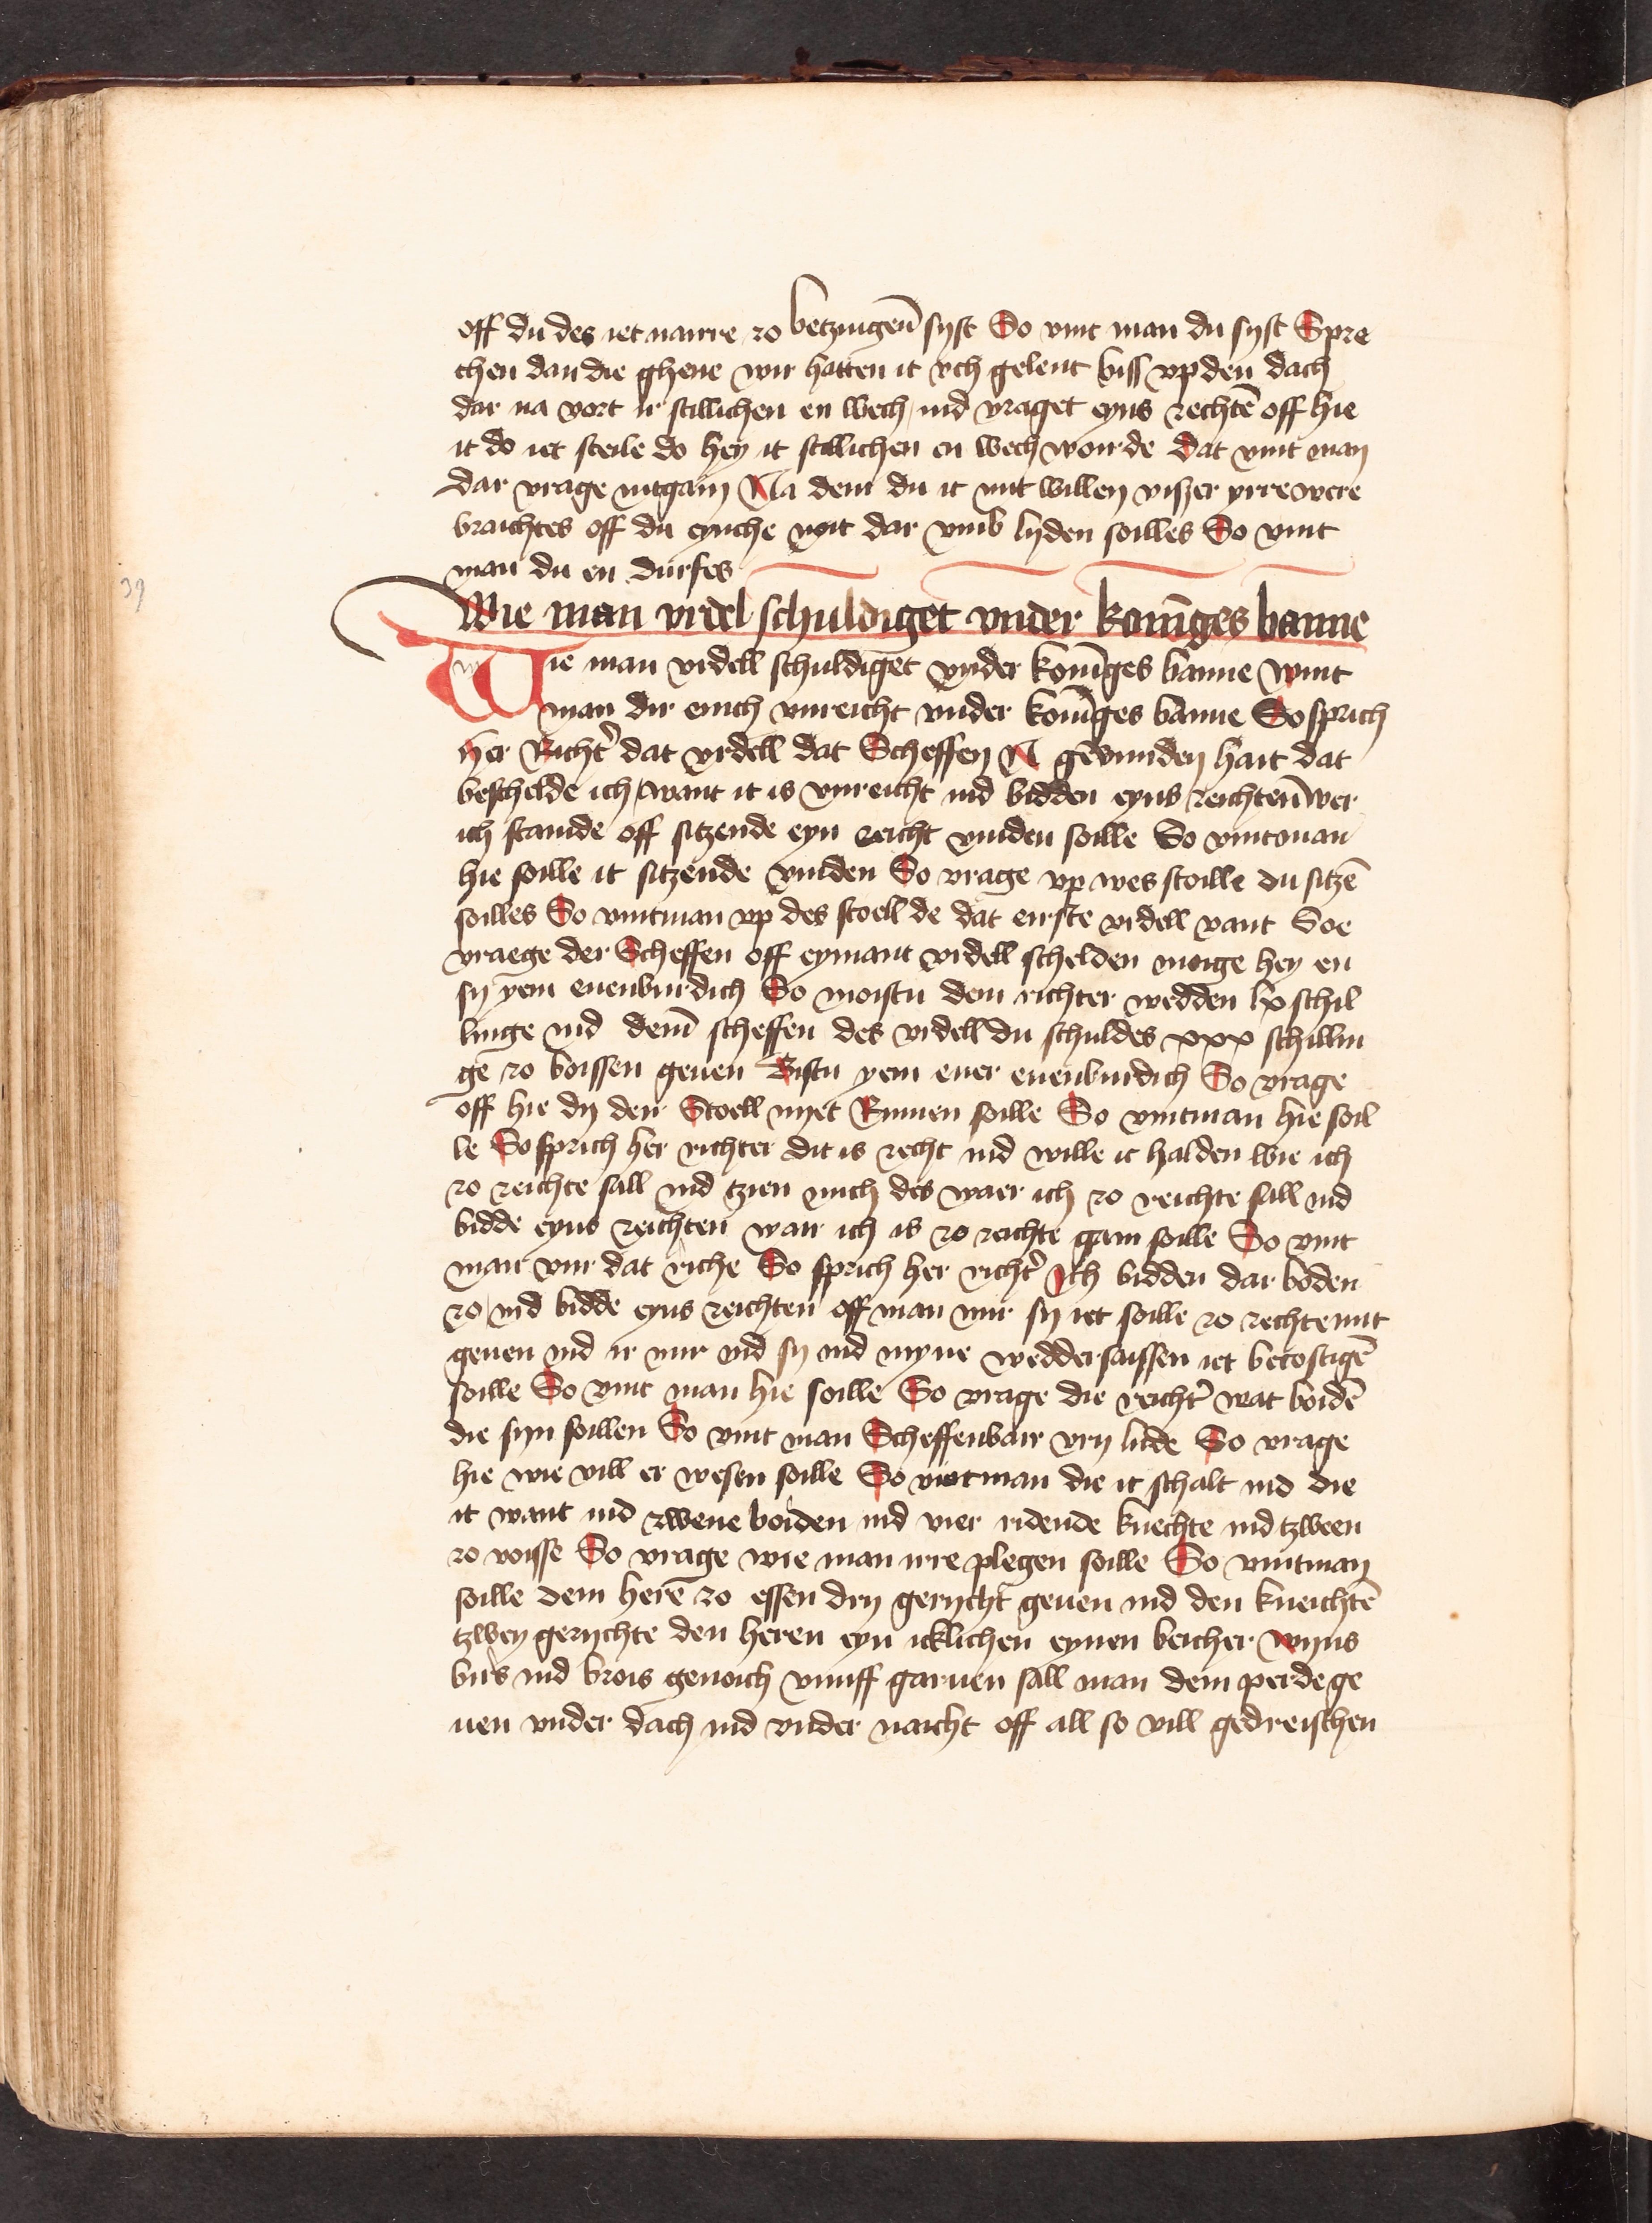 off du des iet naırre zo betzugen̄ syst So vint man du syst Spre
chen dan die ghene wir hatten it vch gelent biss vp den dach
dar na vort ir stillichen en wech ind vraget eyns rechtē off hie
it do iet steile do hey it stillichen en wech vourde dat vint man
dar vrage intgain Na dem du it mit willen viszer yrre were
braichtes off du eynche noit dar vmb lyden soilles So vint
man du en durfes
39
Wie man vrdel schuldiget vnder konīges banne
Wie man vrdell schuldiget vnder konīges banne vint
man dir enich vnreicht vnder konīges banne So sprich
Her Richt' dat vrdell dat Scheffen N gevunden hait dat
beschelde ich want it is vnreicht ind bidden eyns reichten̄ wer
ich stainde off sitzende eyn reicht vinden soille So vint man
hie soille it sitzende vinden So vrage vp wes stoille du sitzē
soilles So vintman vp des stoell de dat eirste vrdell vant Soe
vraege der Scheffen off eymant vrdell schelden moige hey en
sy yem euenburdich So moistu dem richter wedden lx schil
linge ind dem̄ scheffen des vrdell du schuldes xxx schillin
ge zo boissen geuen Bistu yem euer euenburdich So vrage
off hie dy den Stoell nyet Rumen soille So vintman hie soil
le So sprich her richter dit is recht ind wille it halden wie ich
zo reichte sall ind tzien mich des waer ich zo reichte sall ind
bidde eyns reichten war ich is zo reichte gain soille So vint
man vur dat riche So sprich her richt' Ich bidden dar boden
zo ind bidde eyns reichten off man mir sy iet soille zo rechte mit
geuen ind ir mir ind sy ind myne weddersaissen iet becostigē
soille So vint man hie soille So vrage die reicht' wat boidē
die syn soillen So vint man Scheffenbair vry lude So vrage
hie wie vill er wesen soille So vintman die it schalt ind die
it vant ind zwene boiden ind vier ridende knechte ind tzween
zo voisse So vrage wie man irre plegen soille So vintman
soille dem herē zo essen dry gerycht geuen ind den kneichtē
tzwey gerychte den heren eyn icklichen eynen beicher wyns
birs ind brois genoich vunff garuen sall man dem perde ge
uen vnder dach ind vnder naicht off all so vill gedreischen